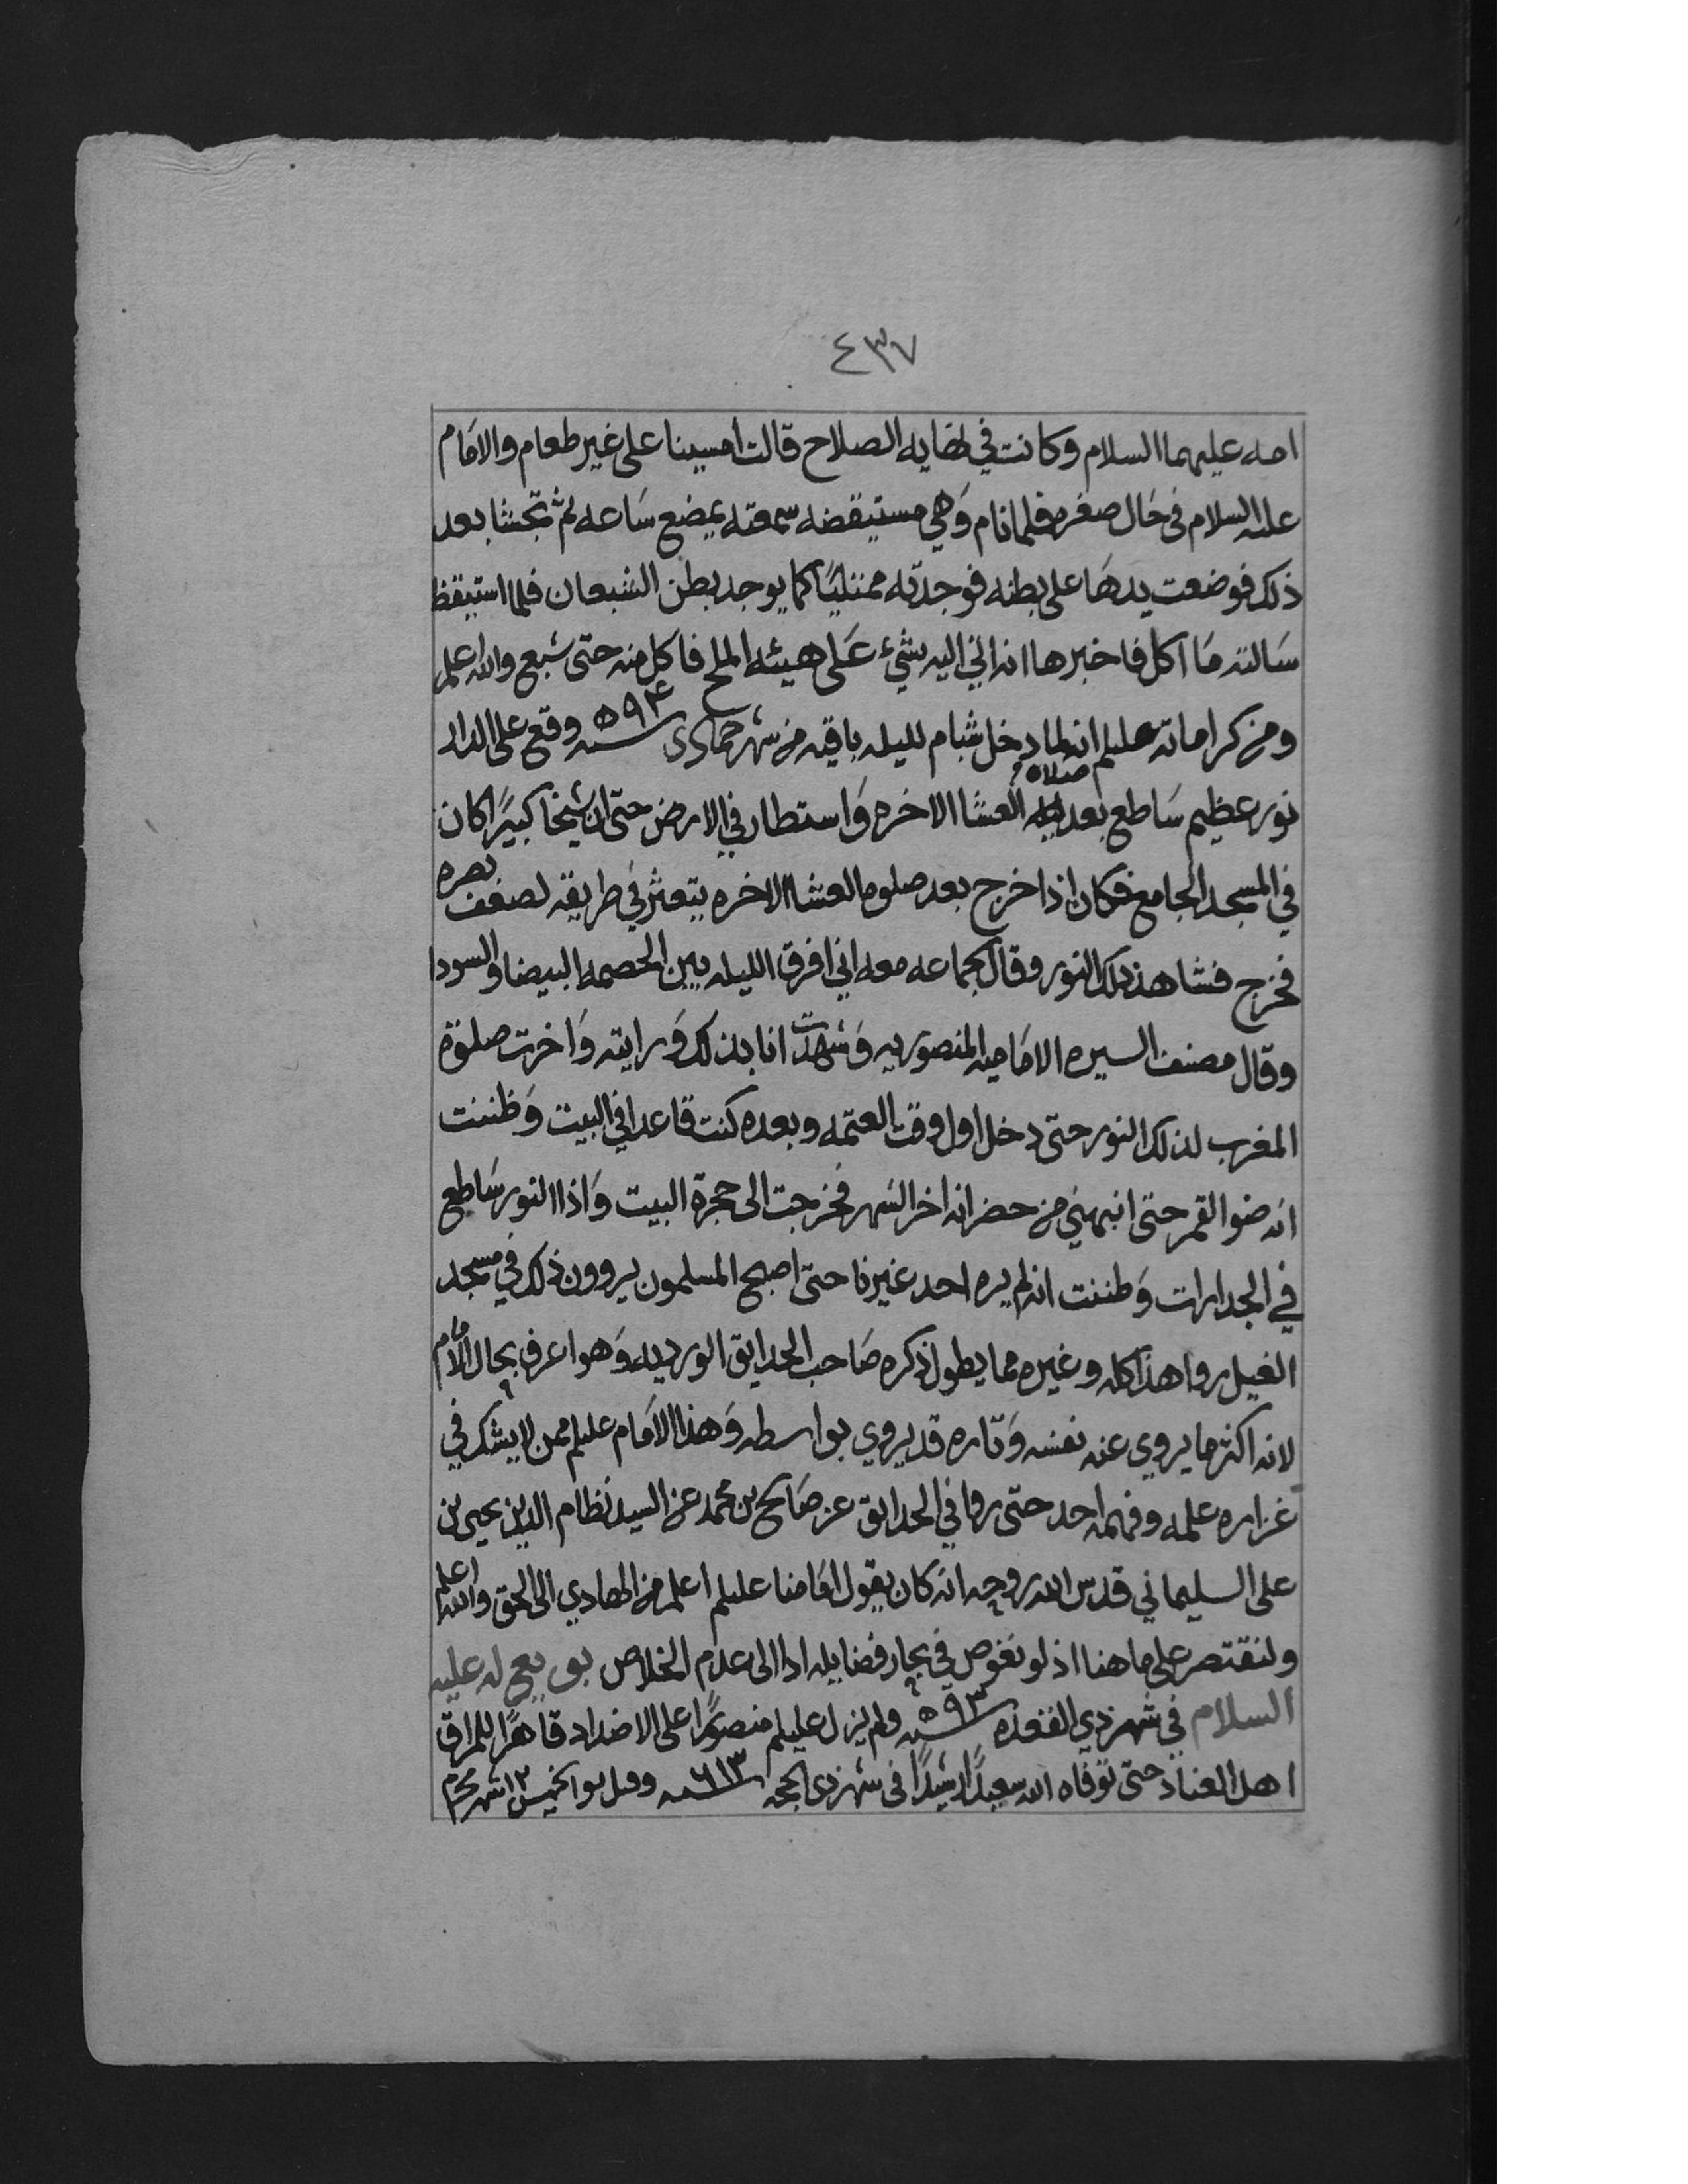 ٤٣٧
امه عليهما السلام وكانت في نهايه الصلاح قالت امسينا على غير طعام والامام
عليه السلام في حال صغره فلما نام وهي مستيقضه سمعته يمضغ ساعه ثم تجشا بعد
ذلك فوضعت يدها على بطنه فوجدته ممتليًا كما يوجد بطن الشبعان فلما استيقظ
سالته ما اكل فاخبرها انه اتي اليه بشيء على هيئه الملح فاكل منه حتى شبع والله اعلم
ومن كراماته عليلم انه لما دخل شبام لليله باقيه من شهر جمادى سنه ٥٩٤ وقع على الدار
نور عظيم ساطع بعد صلاه العشا الاخره واستطار في الارض حتى ان شيخا كبيرًا كان
في المسجد الجامع فكان اذا خرج بعد صلوه العشا الاخره يتعثر في طريقه لضعف بصره
فخرج فشاهد ذلك النور وقال لجماعه معه اني افرق الليله بين الحصمه البيضا والسودا
وقال مصنف السيره الاماميه المنصوريه وشهدت انا بذلك ورايته واخرت صلوة
المغرب لذلك النور حتى دخل اول وقت العتمه وبعده كنت قاعدا في البيت وظننت
انه ضو القمر حتى انبهني من حضر انه اخر الشهر فخرجت الى حجرة البيت واذا النور ساطع
في الجدارات وظننت انه لم يره احد غيرنا حتى اصبح المسلمون يروون ذلك في مسجد
الغيل روا هذا كله وغيره مما يطول ذكره صاحب الحدايق الورديه وهو اعرف بحال الامام
لانه اكثر ما يروي عنه نفسه وتاره قد يروي بواسطه وهذا الامام عليلم ممن لا يشك في
غزاره علمه وفهمه احد حتى روا في الحدايق عن صالح بن محمد عن السيد نظام الدين يحيى بن
على السليماني قدس الله روحه انه كان يقول امامنا عليلم اعلم من الهادي الى الحق والله اعلم
ولنقتصر على ما هنا اذ لو نغوص في بحار فضايله ادا الى عدم الخلاص بويع له عليه
السلام في شهر ذي القعده سنه ٥٩٣ ولم يزل عليلم منصورًا على الاضداد قاهرًا للمراق
اهل العناد حتى توفاه الله سعيدًا رشيدًا في شهر ذي الحجه سنه ٦١٣ وقيل يوم الخميس ١٢ شهر محرم